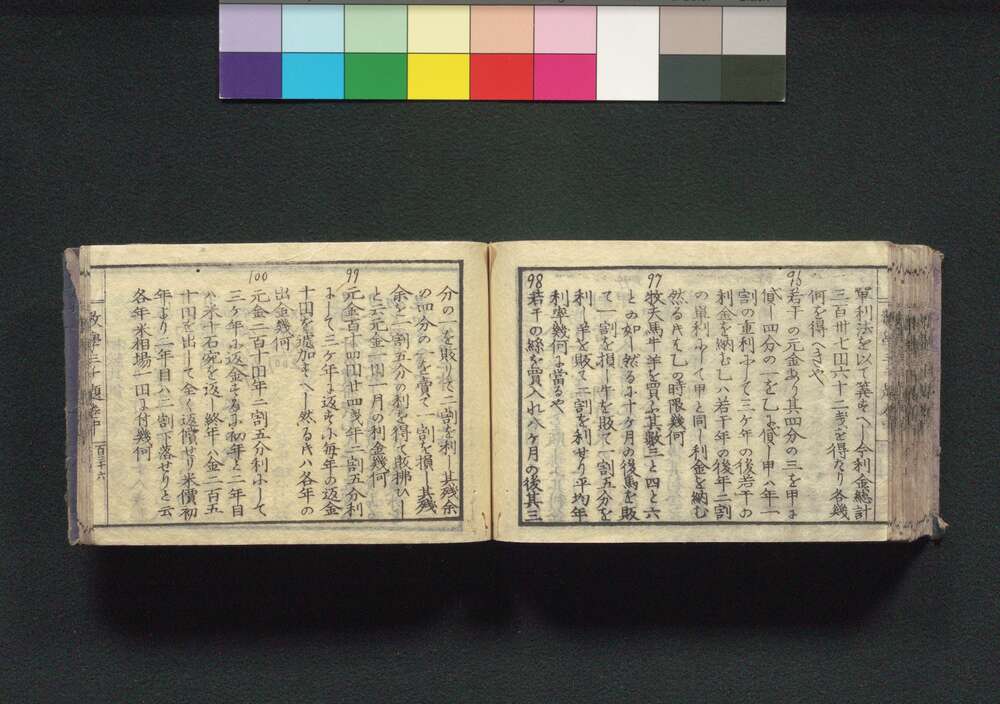 單利法を以て筭すへし今利金総計
三百卅七円六十二銭を得たり各幾
何を得へきや
96
若干の元金あり其四分の三を甲に
償し四分の一を乙に償し甲ハ年一
割の重利にして三ケ年の後若干の
利金を納む乙ハ若干年の後年二割
の單利にして甲と同し利金を納む
然る時は乙の時限幾何
97
牧夫馬牛羊を買ふ其數三と四と六
との如し然るに十ケ月の後馬を販
て一割を損し牛を販て一割五分を
利し羊を販て二割を利せり平均年
利率幾何に當るや
98
若干の絲を買入れ八ケ月の後其三
分の一を販りて二割を利し其残余
の四分の一を賣て一割を損し其残
余を一割五分の利を得て販拂ひし
と云元金一円一月の利金幾何
99
元金百十四円廿四銭年二割五分利
にして三ケ年に返すに毎年の返金
十円を逓加すへし然る時ハ各年の
出金幾何
100
元金二百十四年二割五分利にして
三ケ年に返金するに初年と二年目
ハ米十石宛を返し終年ハ金二百五
十円を出して全く返償せり米價初
年より二年目ハ二割下落せりと云
各年米相場一円に付幾何
數學三千題卷中
百三十六